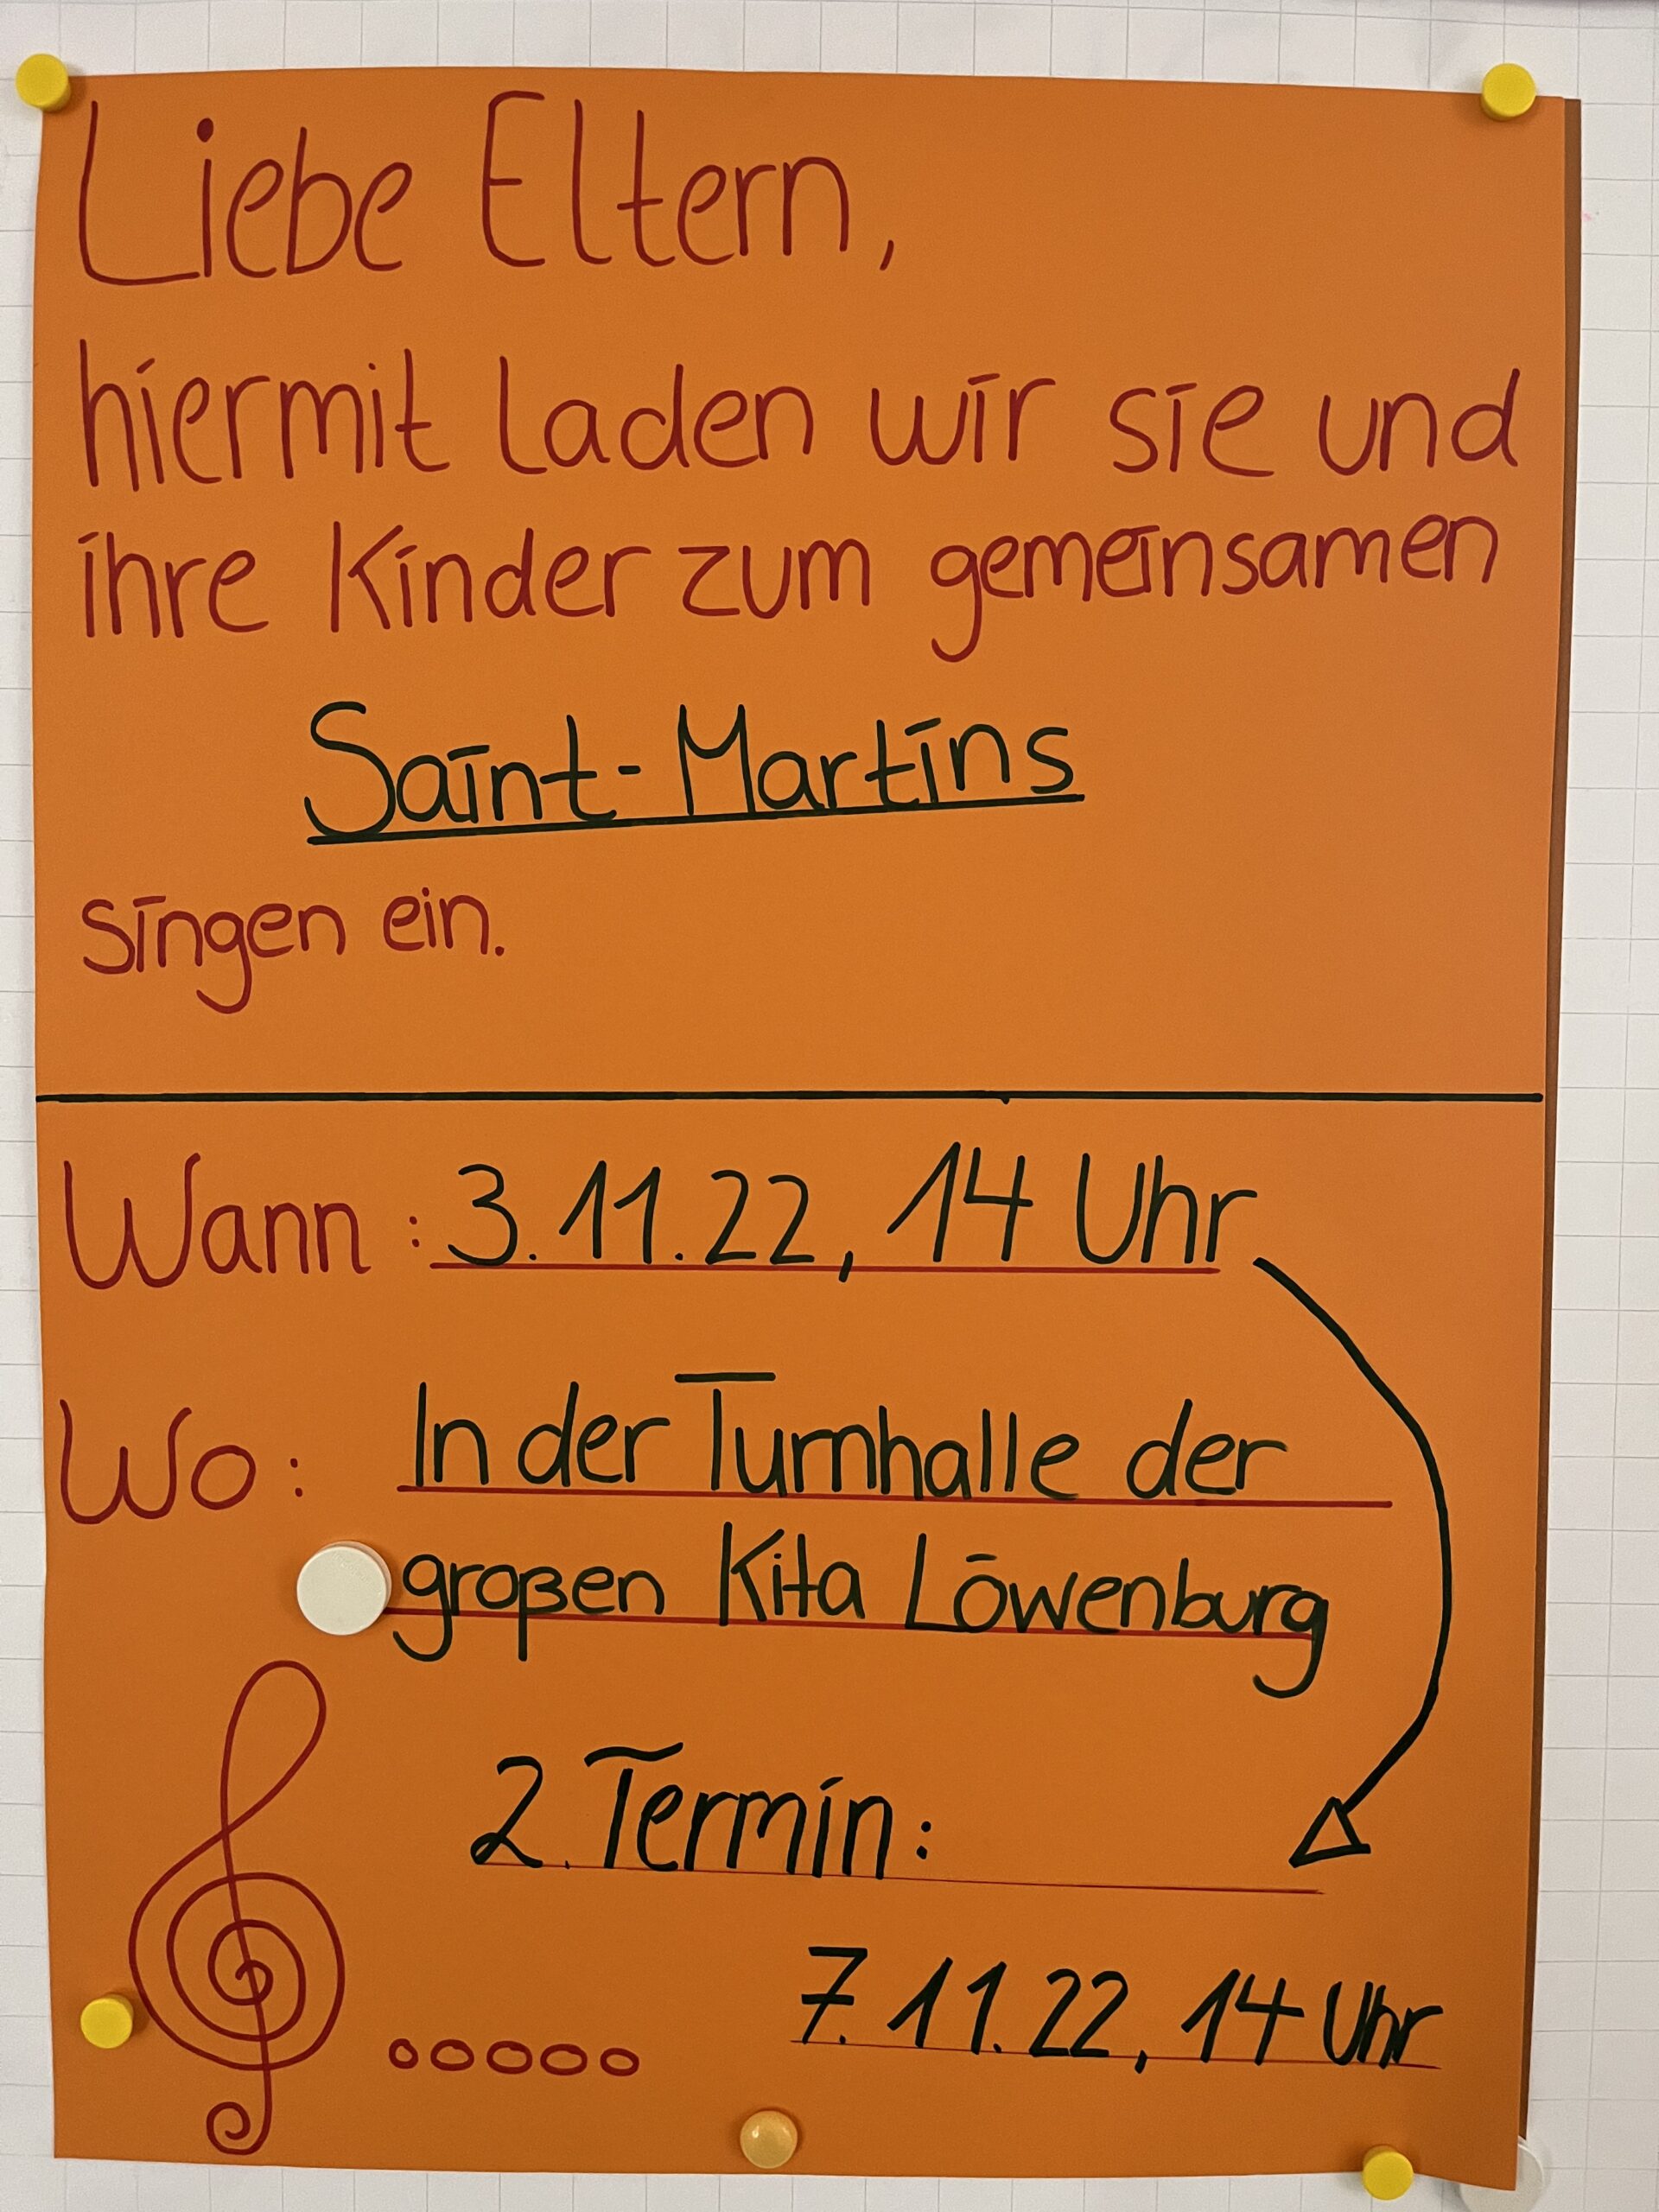 Liebe Eltern,
hiermit laden wir sie und
ihre Kinder zum gemeinsamen
Saint-Martins
singen ein.
Wann: 3.11.22, 14 Uhr
Wo: In der Turnhalle der
großen Kita Löwenburg
2. Termin:
7.11.22, 14 Uhr